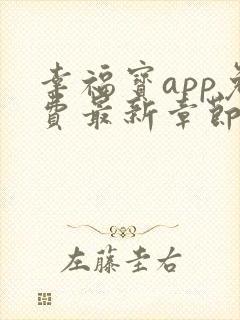 幸福宝app免
费最新章节
左藤圭右